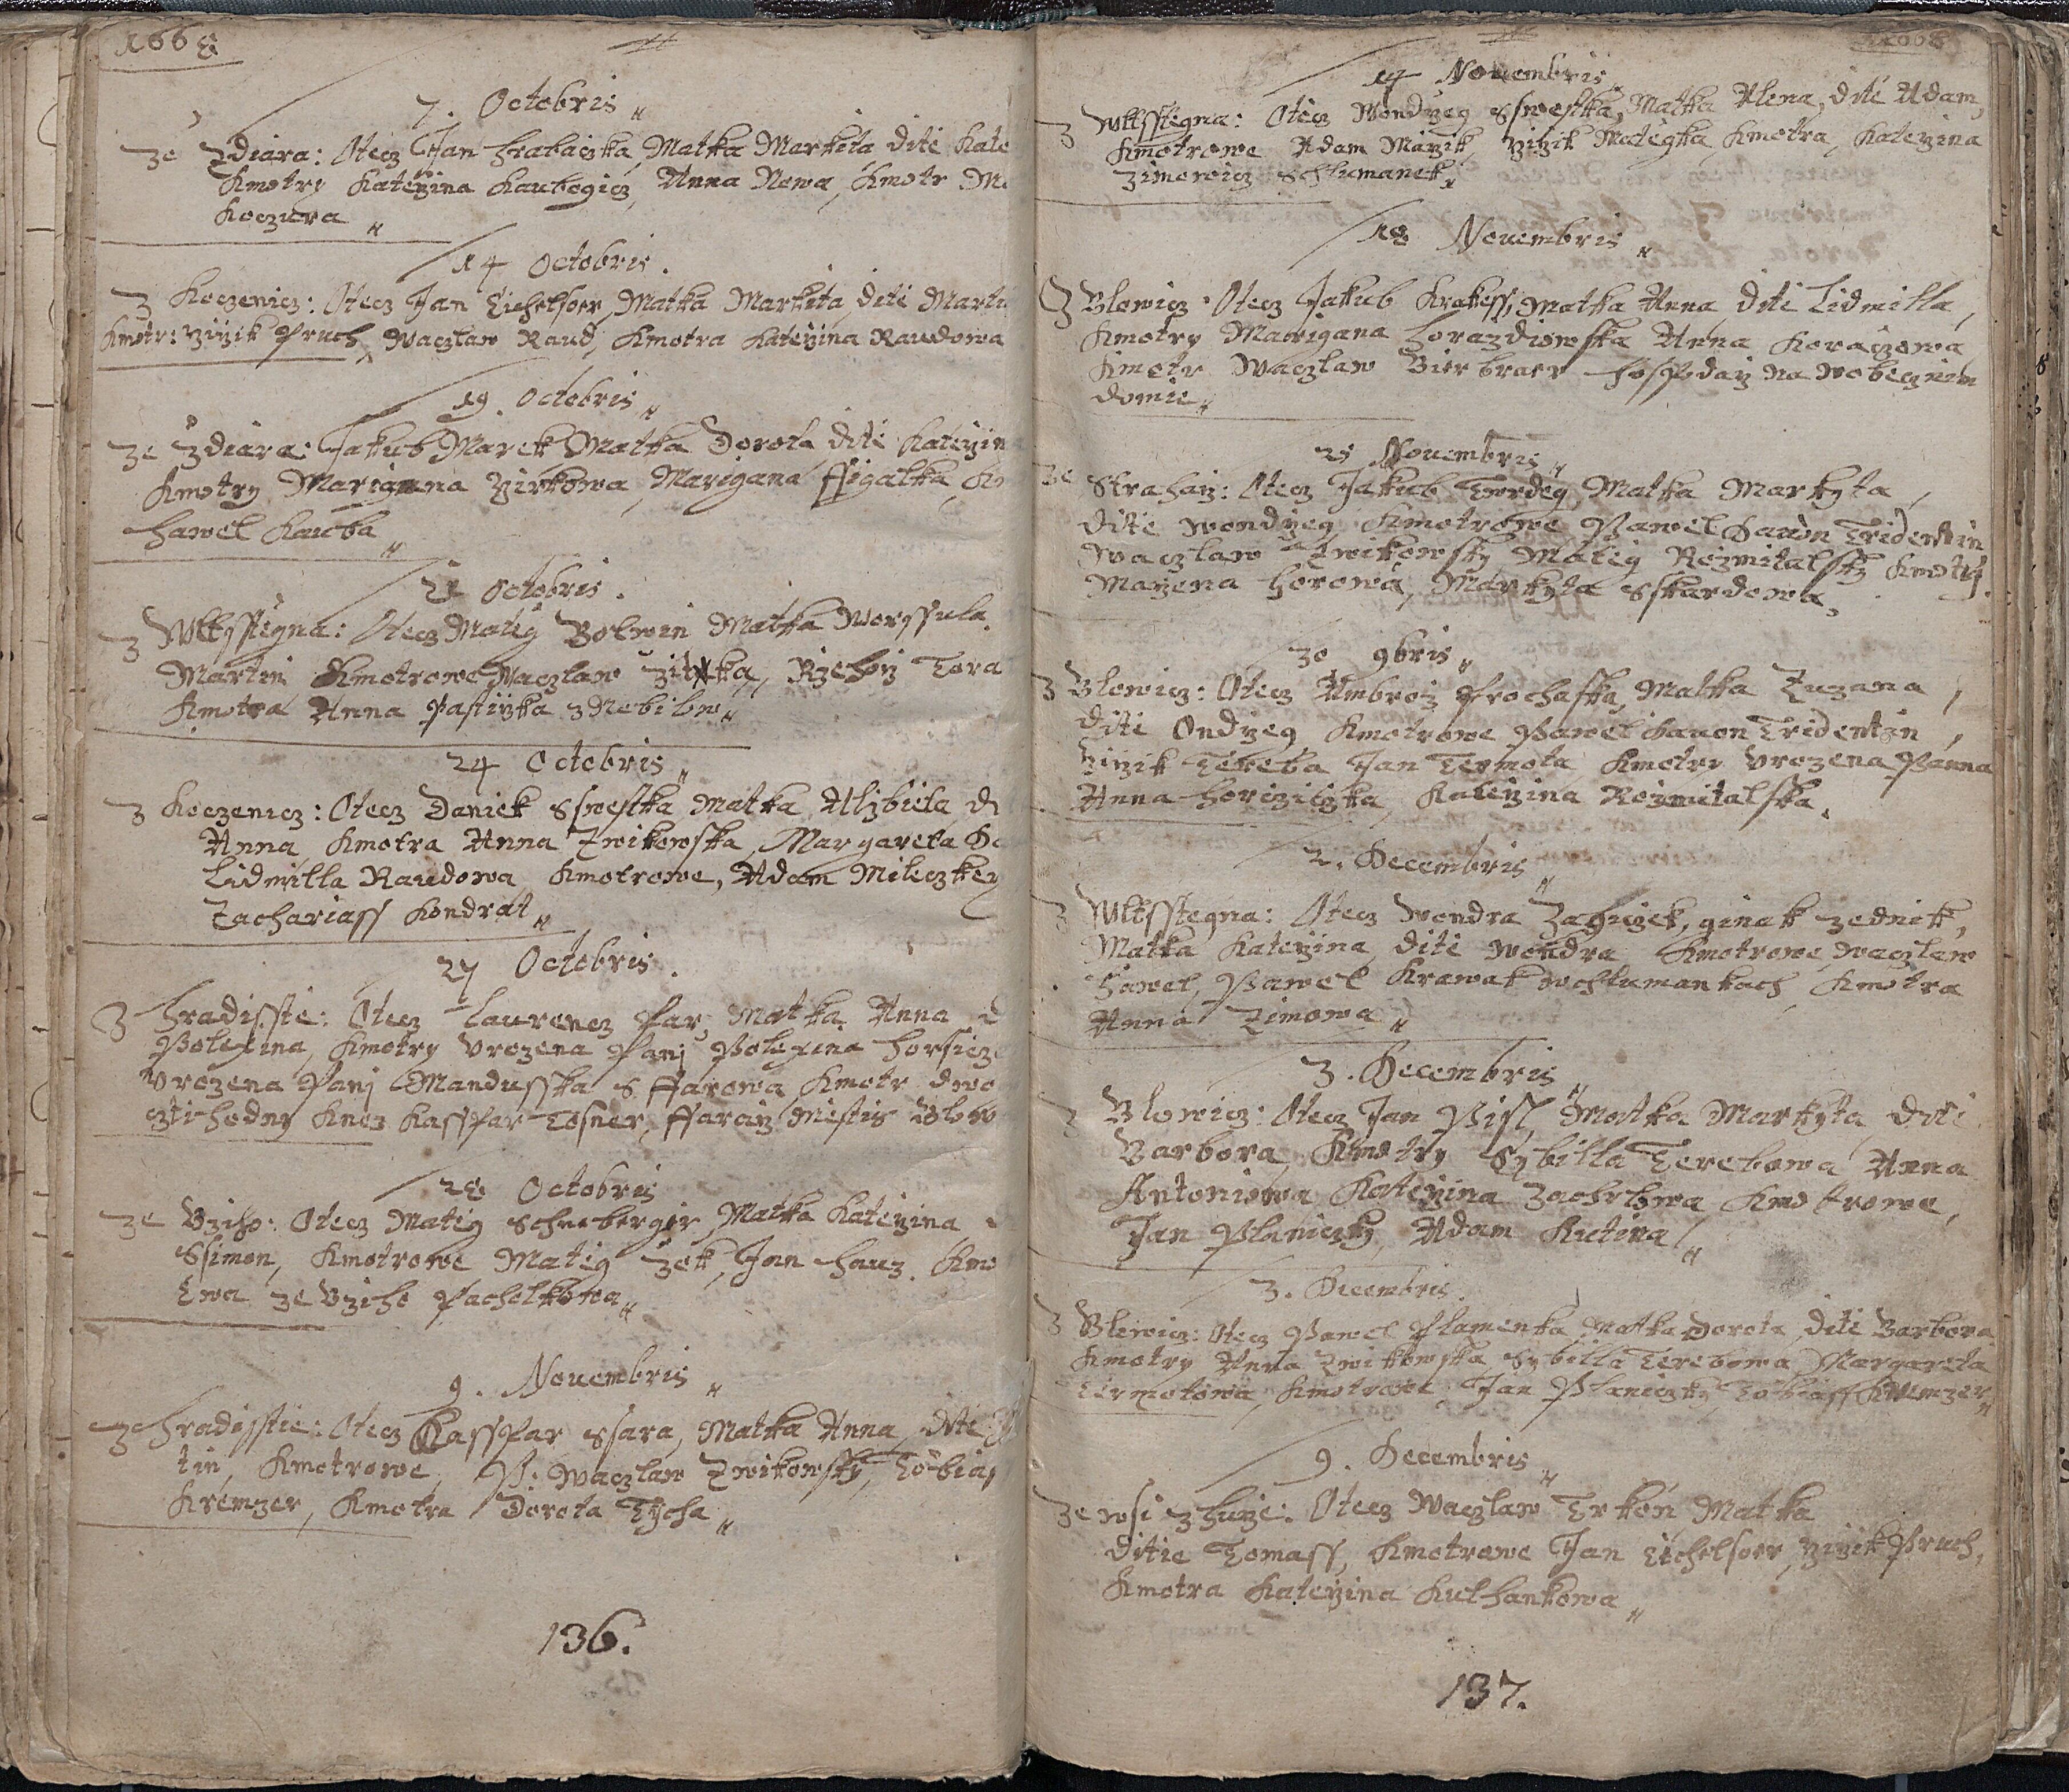 1668
7. Octobris
Ze Zdiara: Otecz Jan Hrabaczka, Matka Markéta dité Kate
Kmotry Kateržina Kaubogicz, Anna Nowa, Kmotr
Koczura
14 Octobris.
Z Koczenicz: Otecz Jan Eichelsoer, Matka Markéta, dité Marti
Kmotr: Yržik Pruch, Waczlaw Raud, Kmotra Kateržina Raudowa
19. Octobris
Ze Zdiara: Jakub Marek Matka Dorota dité Kateržin
Kmotry Marigana Yirkowa, Marigana Figalka,
Hawel Kaucba
Octobris.
Z Wltsstegna: Otecz Matig Bolwin Matka Worssula
Martin, Kmotrowe Waczlaw Zitka, Ržehorž
Kmotra Anna Pastiržka z Nebilow
24 Octobris
Z Koczenicz: Otecz Daniek Sswestka Matka Alzbieta
Anna Kmotra Anna Zwikowska, Margareta
Lidmilla Raudowa, Kmotrowe, Adam Mileczkey
Zachariass Kondrat
27 Octobris.
Z Hradisstie: Otecz Laurencz Far, Matka Anna
Polexina, Kmotry Vrozena Panj Polexina
Vrozena Panj Mandusska Kmotr dwo
cztihodny Knez Kasspar Tosner, Ffararž Miestis Blow
28 Octobris
Ze Vziho: Otecz Matig Schneberger, Matka Kateržina
Ssimon, Kmotrowe Matig Zek, Jan Hauz. Kmo
Ewa ze Vziho Pachelkowa
9. Nouembris
Ze Hradisstie: Otecz Kasspar Ssara, Matka Anna, dité
tin, Kmotrowe, P: Waczlaw Zwikowsky, Tobias
Kremzer, Kmotra Dorota Tycha
136.
1668
14 Nouembris
Z Wltsstegna: Otecz Wondrzeg Sswestka, Matka Alena, dité Adam,
Kmotrowe Adam Mažik, Yržik Matégka, Kmotra, Kateržina
Zimowicz Schlumanek
18 Nouembris
Z Blowicz: Otecz Jakub Krakess, Matka Anna dité Lidmilla,
Kmotry Marigana Horazdiowska Anna Koraczowa
Kmotr Waczlaw Bierbraer Hosspodarž na wobecznim
domie
25 Nouembris
Ze Straharž: Otecz Jakub Twrdey, Matka Markyta,
dité Wondržeg, Kmotrowe Pawel Hauon Tridentin
Waczlaw Zwikowsky Matig Rožmitalsky Kmotry
Maržena Horowa, Markyta Sskardowa
30 9bris
Z Blowicz: Otecz Ambrož Prochaska, Matka Zuzana,
dité Ondrzeg Kmotrowe Pawel Hauon Tridentin,
Yržik Tereba Jan Termota Kmotry Vrozena Panna
Anna Horczicska, Kateržina Rožmitalska.
2. Decembris
Z Wltsstegna: Otecz Wondra ginak Zednik,
Matka Kateržina dité Wondra Kmotrowe, Waczlaw
Hawel, Pawel Krawak w Chlumankach, Kmotra
Anna Zimowa
3. Decembris
Z Blowicz: Otecz Jan Pisl, Matka Markyta, dité
Barbora, Kmotry Sybilla Terebowa Anna
Antoniowa Kateržina Zachrlowa Kmotrowe,
Jan Planiczky, Adam Kutina
3. Decembris.
Z Blowicz: Otecz Pawel Plamenka, Matka Dorota, dité Barbora
Kmotry Anna Zwikowska, Sybilla Terebowa, Margareta
Termotowa, Kmotrowe Jan Planiczky, Tobiass Kremzer
9. Decembris
Ze wsi z Hurže: Otecz Waczlaw Trkon Matka
ditie Tomass, Kmotrowe Jan Eichelsoer, Yržik Pruch,
Kmotra Kateržina Kulhankowa
137.